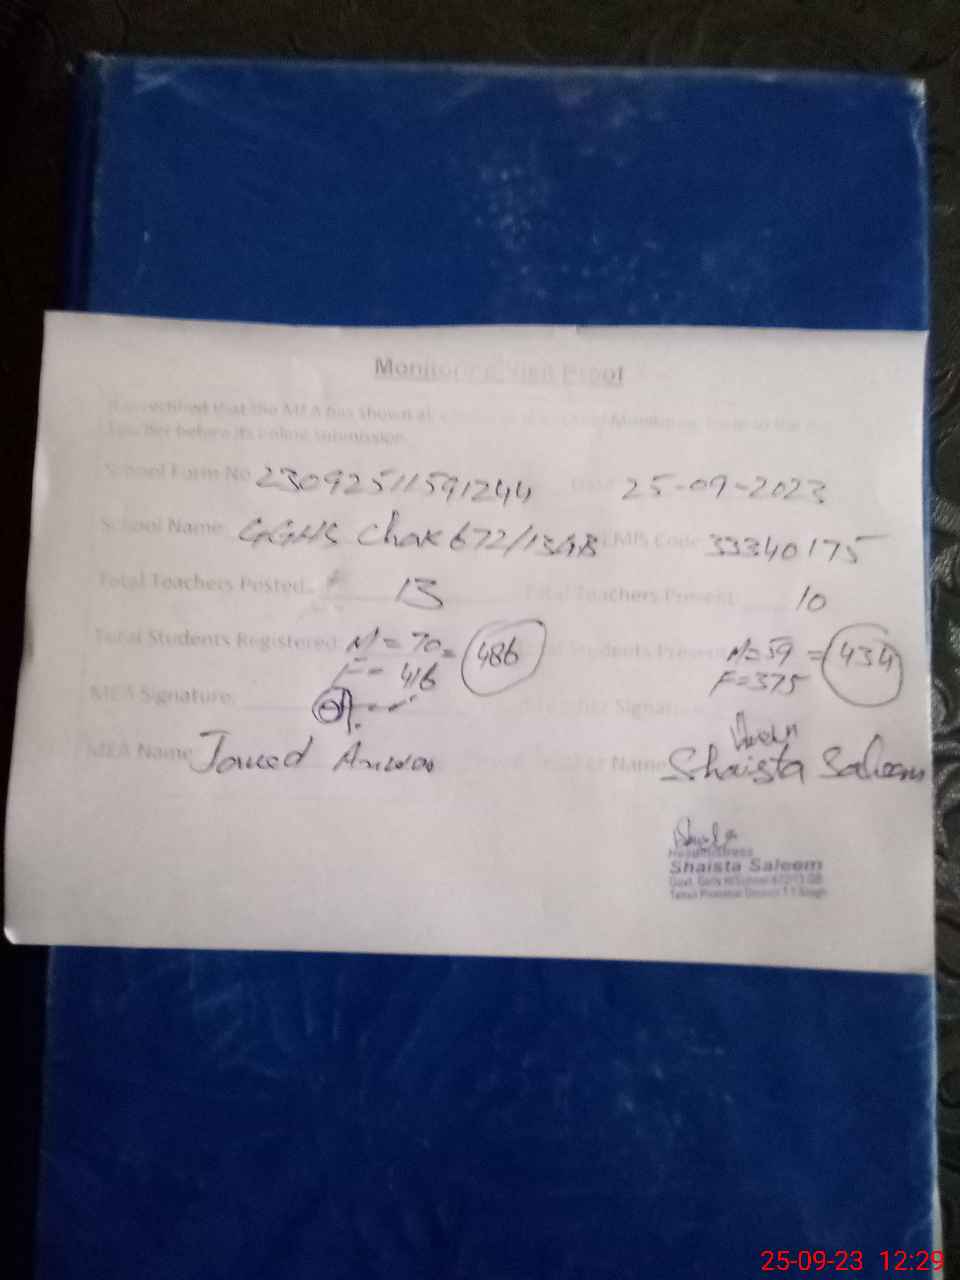 Monitoring Visit Proof
certified that the MEA has shown all Monitoring form to the
before its online submission
School Form No 23092511591244 Date 25-09-2023
School Name: GGHS Chak 672/13GB EMIS Code 33340175
Total Teachers Posted: 13 Total Teachers Present 10
Total Students Registered: M = 70 = 486 Students Present M=59 = 434
F = 416 F=375
MEA Signature: Signature
MEA Name: Javed Anwar Name Shaista Saleem
Headmistress
Shaista Saleem
Govt. Girls H/School 672/13 GB
25-09-23 12:29